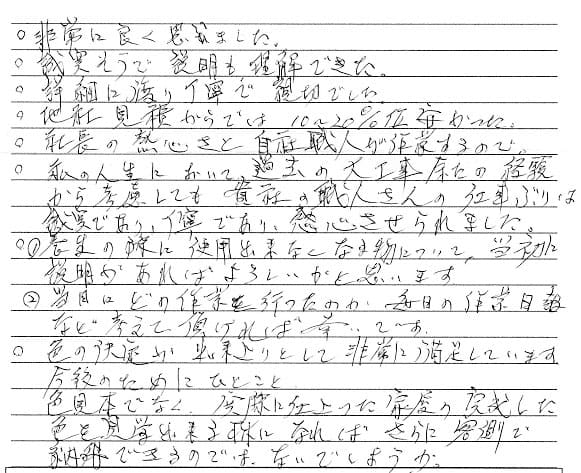 ○ 非常に良く思いました。
○ 誠実そうで説明も理解できた。
○ 詳細に渡り丁寧で親切でした。
○ 他社見積からでは 10〜20% 位安かった。
○ 社長の熱心さと自社職人が作業するので。
○ 私の人生において、過去の大工事 の経験
から考慮しても貴社の職人さんの仕事ぶりは
誠実であり、丁寧であり、感心させられました。
○① 養生の際に使用出来なくなる物について、当初に
説明があればよろしいかと思います
② 当日にどの作業を行ったのか 毎日の作業日報
など考えて頂ければ幸いです。
○ 色の決定が 出来上りとして非常に満足しています
今後のためにひとこと
色見本でなく、実際に仕上った家屋の完成した
色を見学出来る様になれば さらに 客側で
納得できるのでは、ないでしょうか。